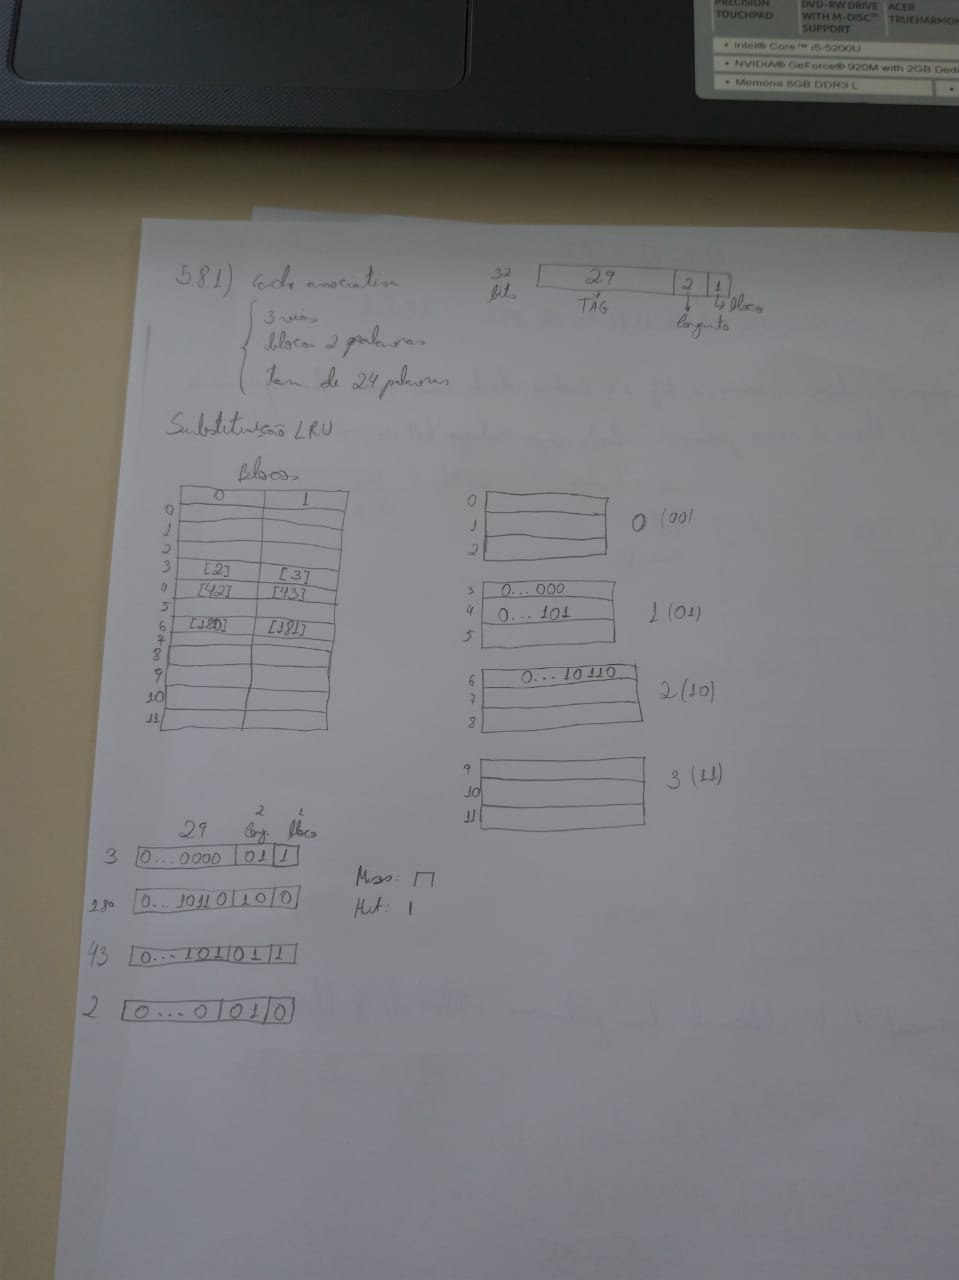 PRECISION TOUCHPAD
DVD-RW DRIVE WITH M-DISC™ SUPPORT
ACER TRUEHARMON
• Intel® Core™ i5-5200U
• NVIDIA® GeForce® 920M with 2GB Dedi
• Memória 8GB DDR3 L
5.8.1) Cache associativa
3 vias
blocos 2 palavras
tam de 24 palavras
32 bits
29 2 1
TAG
Conjunto
bloco
Substituição LRU
Blocos
0 1
0
1
2
3 [2] [3]
4 [42] [43]
5
6 [180] [181]
7
8
9
10
11
0
1
2
0 (00)
3 0...000
4 0...101
5
1 (01)
6 0...10110
7
8
2 (10)
9
10
11
3 (11)
29 2 Conj. 1 bloco
3 0...0000 01 1
180 0...10110 10 0
43 0...101 01 1
2 0...0 01 0
Miss:
Hit: |